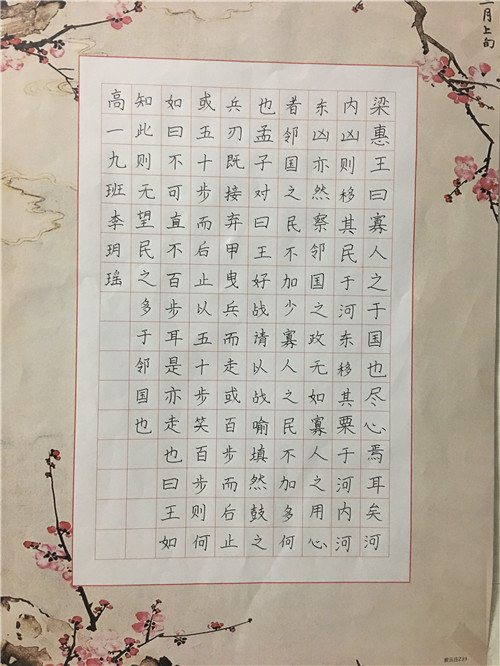 月上旬
梁惠王曰寡人之于国也尽心焉耳矣河
内凶则移其民于河东移其粟于河内河
东凶亦然察邻国之政无如寡人之用心
者邻国之民不加少寡人之民不加多何
也孟子对曰王好战请以战喻填然鼓之
兵刃既接弃甲曳兵而走或百步而后止
或五十步而后止以五十步笑百步则何
如曰不可直不百步耳是亦走也曰王如
知此则无望民之多于邻国也
高一九班李玥瑶